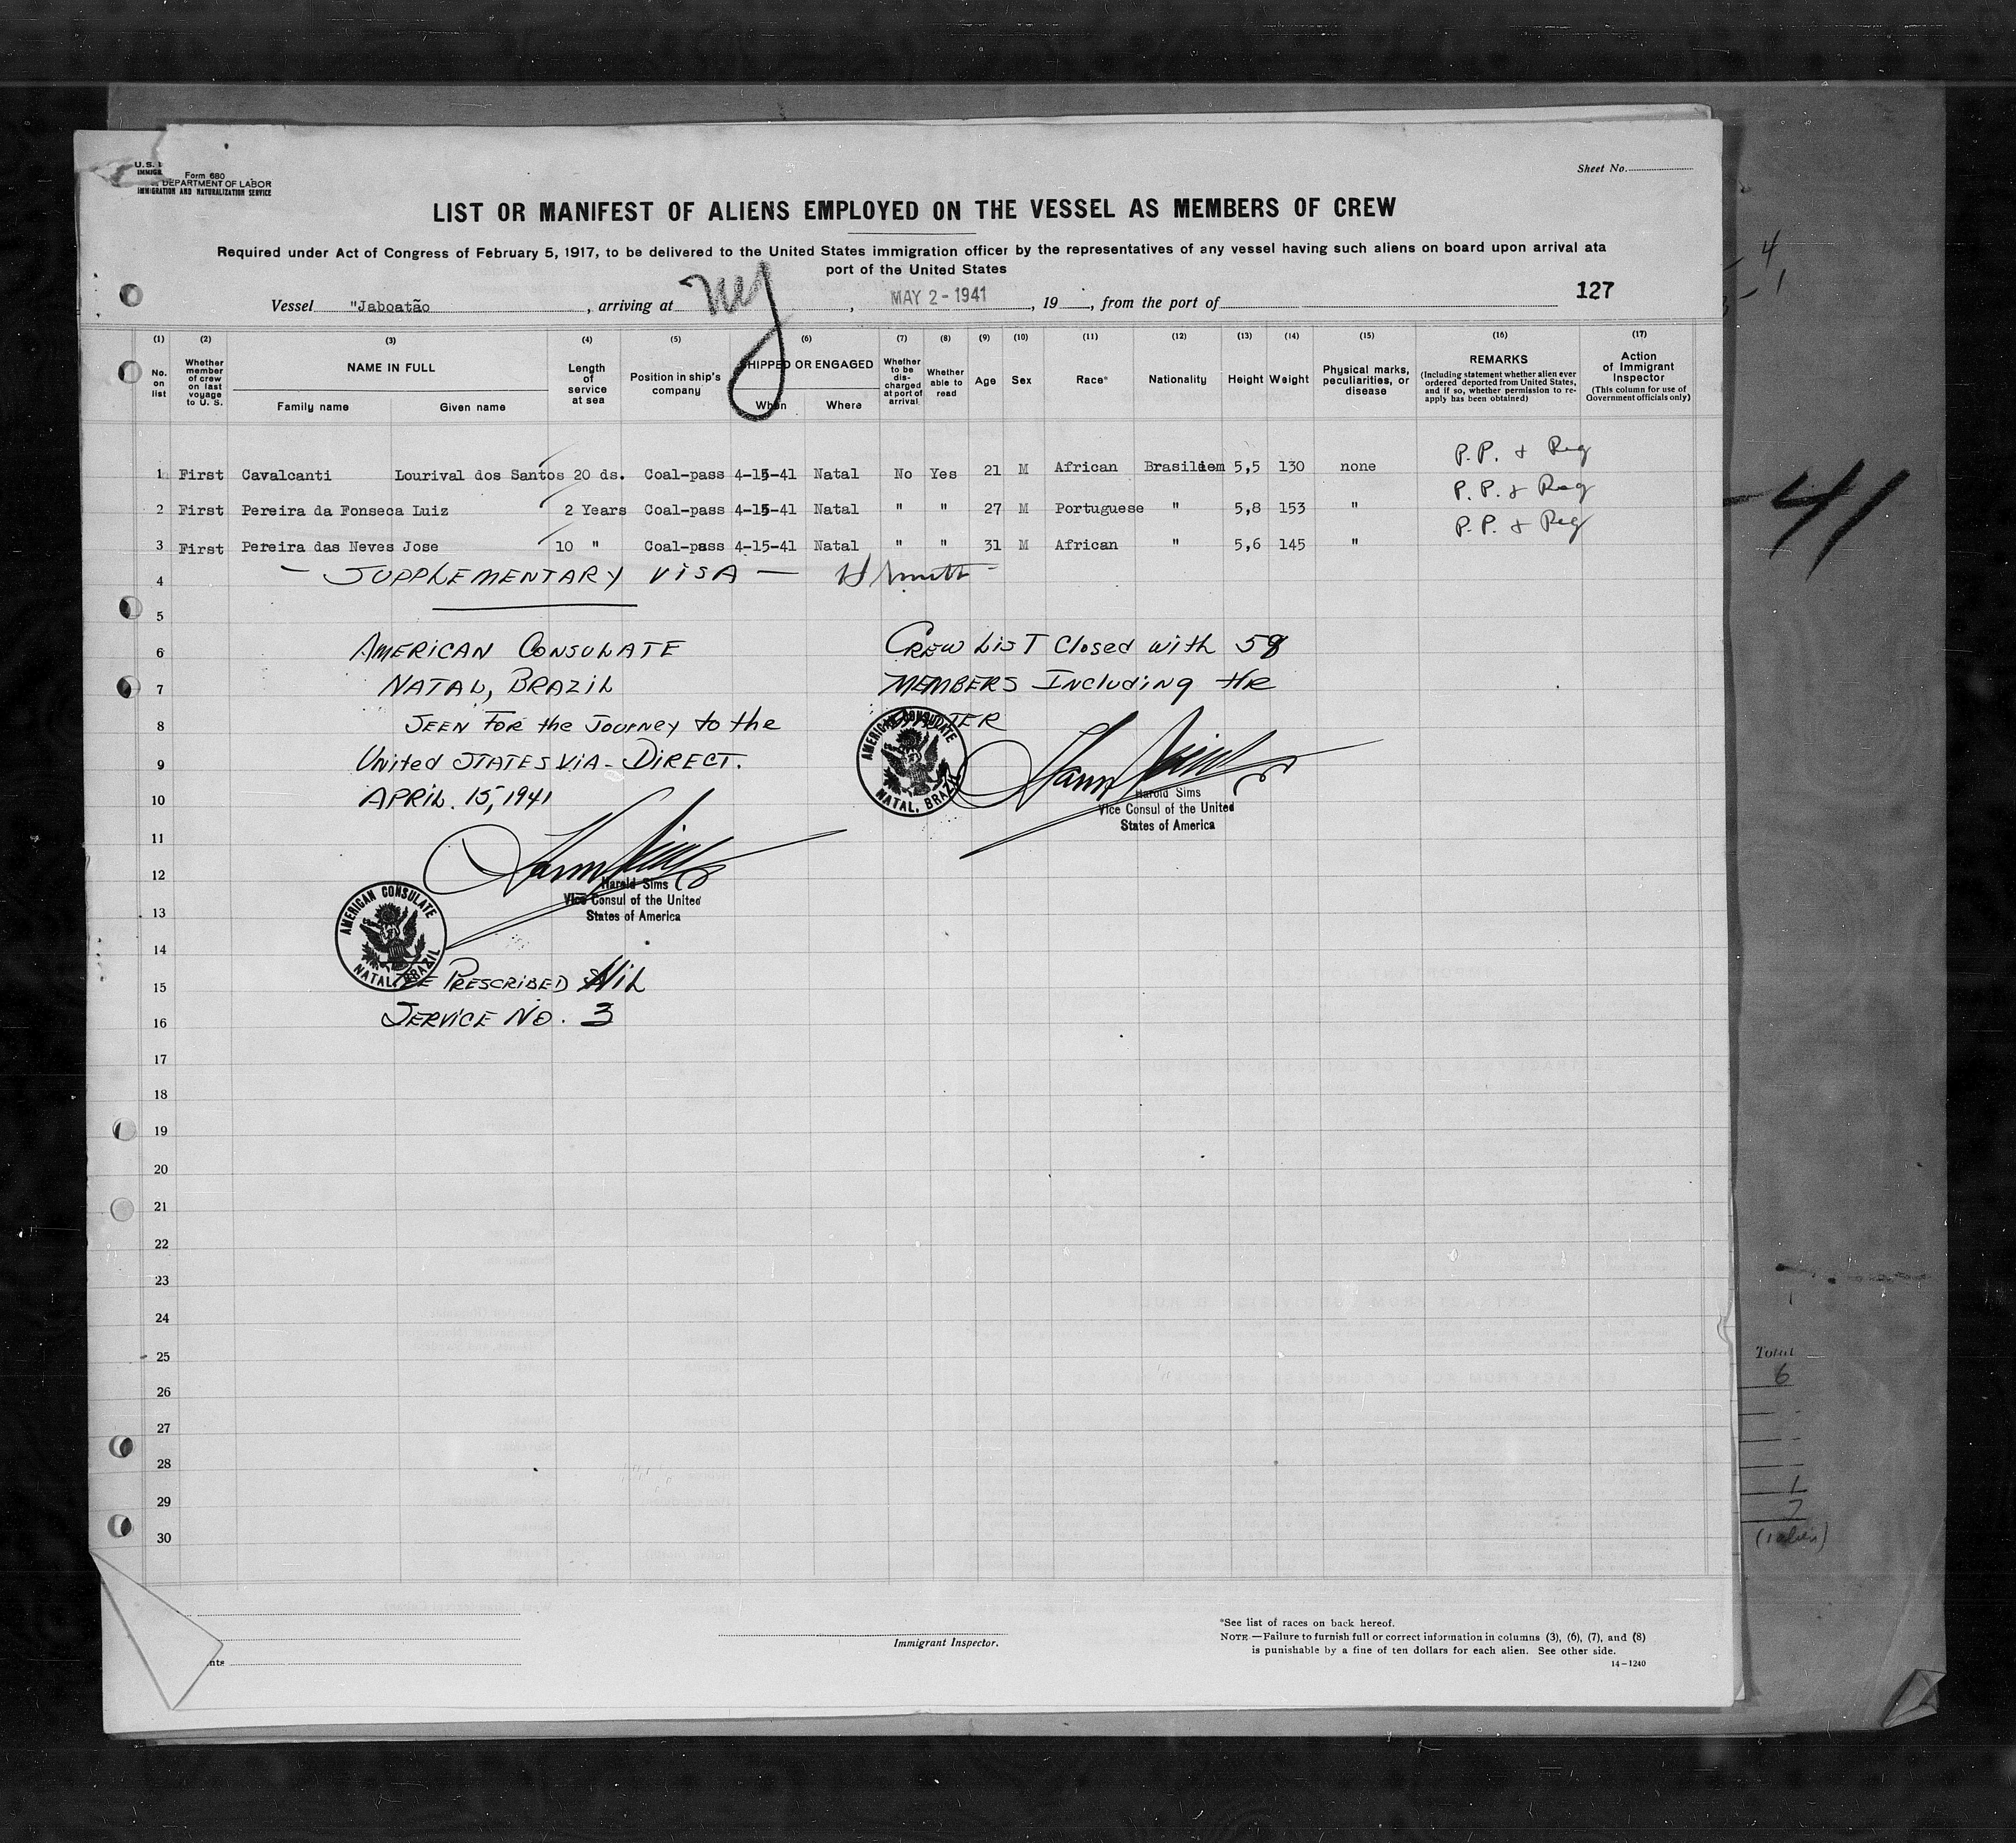 U.S. Form 680
DEPARTMENT OF LABOR
IMMIGRATION AND NATURALIZATION SERVICE
Sheet No.
LIST OR MANIFEST OF ALIENS EMPLOYED ON THE VESSEL AS MEMBERS OF CREW
Required under Act of Congress of February 5, 1917, to be delivered to the United States immigration officer by the representatives of any vessel having such aliens on board upon arrival ata
port of the United States
Vessel "Jaboatão , arriving at NY , MAY 2 - 1941 , 19 , from the port of 127
(1) (2) (3) (4) (5) (6) (7) (8) (9) (10) (11) (12) (13) (14) (15) (16) (17)
No. on list Whether member of crew on last voyage to U. S. NAME IN FULL Family name Given name Length of service at sea Position in ship's company SHIPPED OR ENGAGED When Where Whether to be dis-charged at port of arrival Whether able to read Age Sex Race* Nationality Height Weight Physical marks, peculiarities, or disease REMARKS (Including statement whether alien ever ordered deported from United States, and if so, whether permission to re-apply has been obtained) Action of Immigrant Inspector (This column for use of Government officials only)
1 First Cavalcanti Lourival dos Santos 20 ds. Coal-pass 4-15-41 Natal No Yes 21 M African Brasiliem 5,5 130 none P.P. & Reg
2 First Pereira da Fonseca Luiz 2 Years Coal-pass 4-15-41 Natal " " 27 M Portuguese " 5,8 153 " P.P. & Reg
3 First Pereira das Neves Jose 10 " Coal-pass 4-15-41 Natal " " 31 M African " 5,6 145 " P.P. & Reg
4 - SUPPLEMENTARY VISA -
5
6 AMERICAN CONSULATE CREW LIST Closed with 58
7 NATAL, BRAZIL MEMBERS Including the
8 SEEN FOR the JOURNEY to the MASTER
9 United STATES VIA - DIRECT.
10 APRIL. 15, 1941
AMERICAN CONSULATE
NATAL, BRAZIL
Harold Sims
Vice Consul of the United
States of America
11
12
Harold Sims
Vice Consul of the United
States of America
13
AMERICAN CONSULATE
NATAL, BRAZIL
14
15 FEE PRESCRIBED NIL
16 SERVICE NO. 3
17
18
19
20
21
22
23
24
25
26
27
28
29
30
Immigrant Inspector.
*See list of races on back hereof.
NOTE.—Failure to furnish full or correct information in columns (3), (6), (7), and (8)
is punishable by a fine of ten dollars for each alien. See other side.
14-1240
4
1
-41
Total
6
1
7
(1 alien)